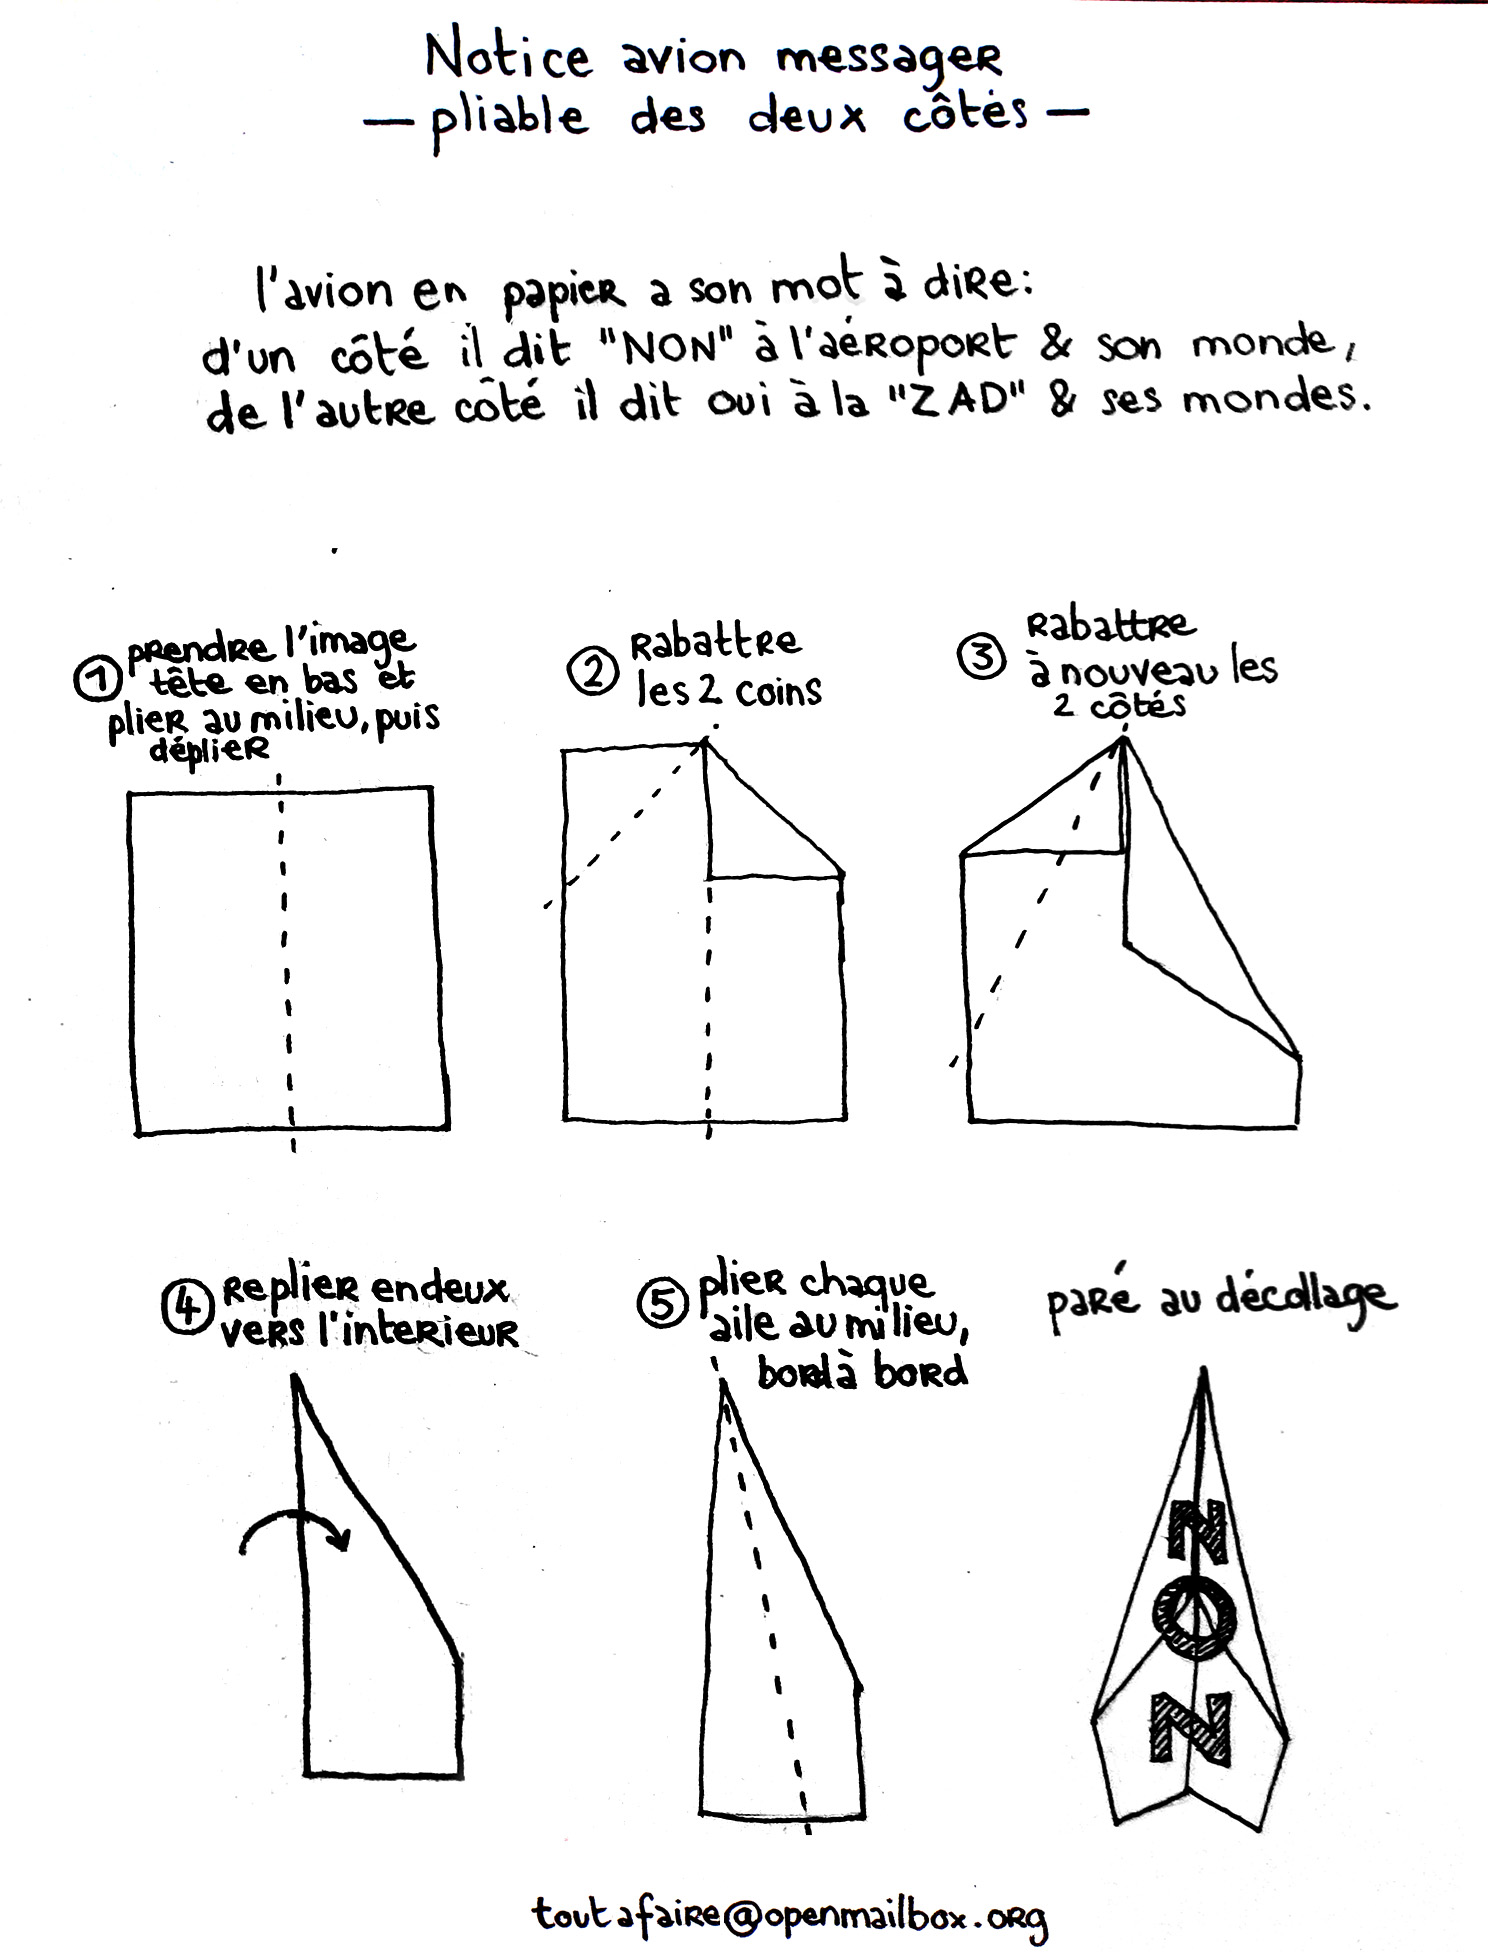 Notice avion messager
— pliable des deux côtés —
l'avion en papier a son mot à dire:
d'un côté il dit "NON" à l'aéroport & son monde,
de l'autre côté il dit oui à la "ZAD" & ses mondes.
① prendre l'image
tête en bas et
plier au milieu, puis
déplier
② Rabattre
les 2 coins
③ Rabattre
à nouveau les
2 côtés
④ Replier en deux
vers l'interieur
⑤ plier chaque
aile au milieu,
bord à bord
paré au décollage
N
O
N
toutafaire@openmailbox.org